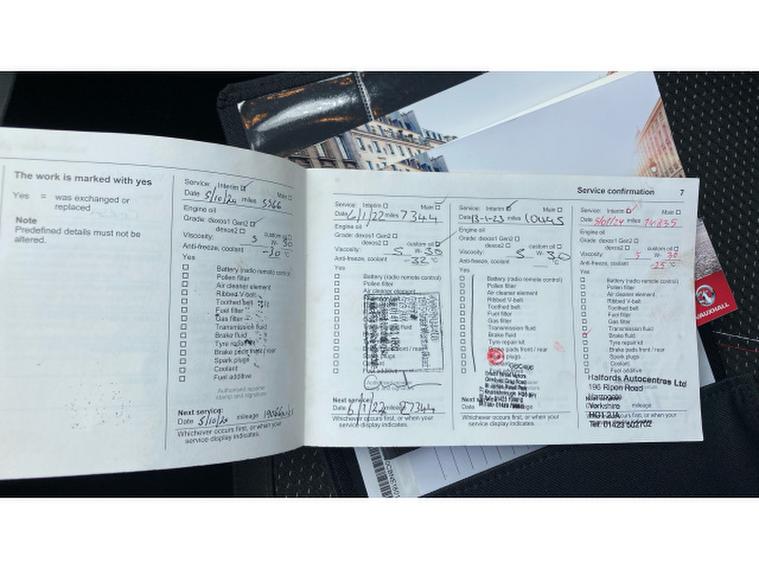 The work is marked with yes
Yes = was exchanged or
replaced
Note
Predefined details must not be
altered.
Service: Interim Main
Date 5/10/20 miles 5366
Engine oil
Grade: dexos1 Gen2
dexos2 custom oil
Viscosity: 5 W- 30
Anti-freeze, coolant -30 °C
Yes
Battery (radio remote control)
Pollen filter
Air cleaner element
Ribbed V-belt
Toothed belt
Fuel filter
Gas filter
Transmission fluid
Brake fluid
Tyre repair kit
Brake pads front / rear
Spark plugs
Coolant
Fuel additive
Authorised repairer
stamp and signature
Next service:
Date 5/10/20 mileage
Whichever occurs first, or when your
service display indicates.
Service confirmation 7
Service: Interim Main
Date 6/1/22 miles 7344
Engine oil
Grade: dexos1 Gen2
dexos2 custom oil
Viscosity: 5 W- 30
Anti-freeze, coolant -32 °C
Yes
Battery (radio remote control)
Pollen filter
Air cleaner element
plugs
Next service:
Date 6/1/22 mileage 27344
Whichever occurs first, or when your
service display indicates.
Service: Interim Main
Date 13-1-23 miles 10445
Engine oil
Grade: dexos1 Gen2
dexos2 custom oil
Viscosity: 5 W- 30
Anti-freeze, coolant °C
Yes
Battery (radio remote control)
Pollen filter
Air cleaner element
Ribbed V-belt
Toothed belt
Fuel filter
Gas filter
Transmission fluid
Brake fluid
Tyre repair kit
Brake pads front / rear
plugs
Whichever occurs first, or when your
service display indicates.
Service: Interim Main
Date miles 14835
Engine oil
Grade: dexos1 Gen2
dexos2 custom oil
Viscosity: 5 W- 30
Anti-freeze, coolant -25 °C
Yes
Battery (radio remote control)
Pollen filter
Air cleaner element
Ribbed V-belt
Toothed belt
Fuel filter
Gas filter
Transmission fluid
Brake fluid
Tyre repair kit
Brake pads front / rear
Spark plugs
Coolant
Fuel additive
Halfords Autocentres Ltd
196 Ripon Road
Yorkshire
mileage
HG1 2JA
Tel: 01423 502702
Whichever occurs first, or when your
service display indicates.
VAUXHALL